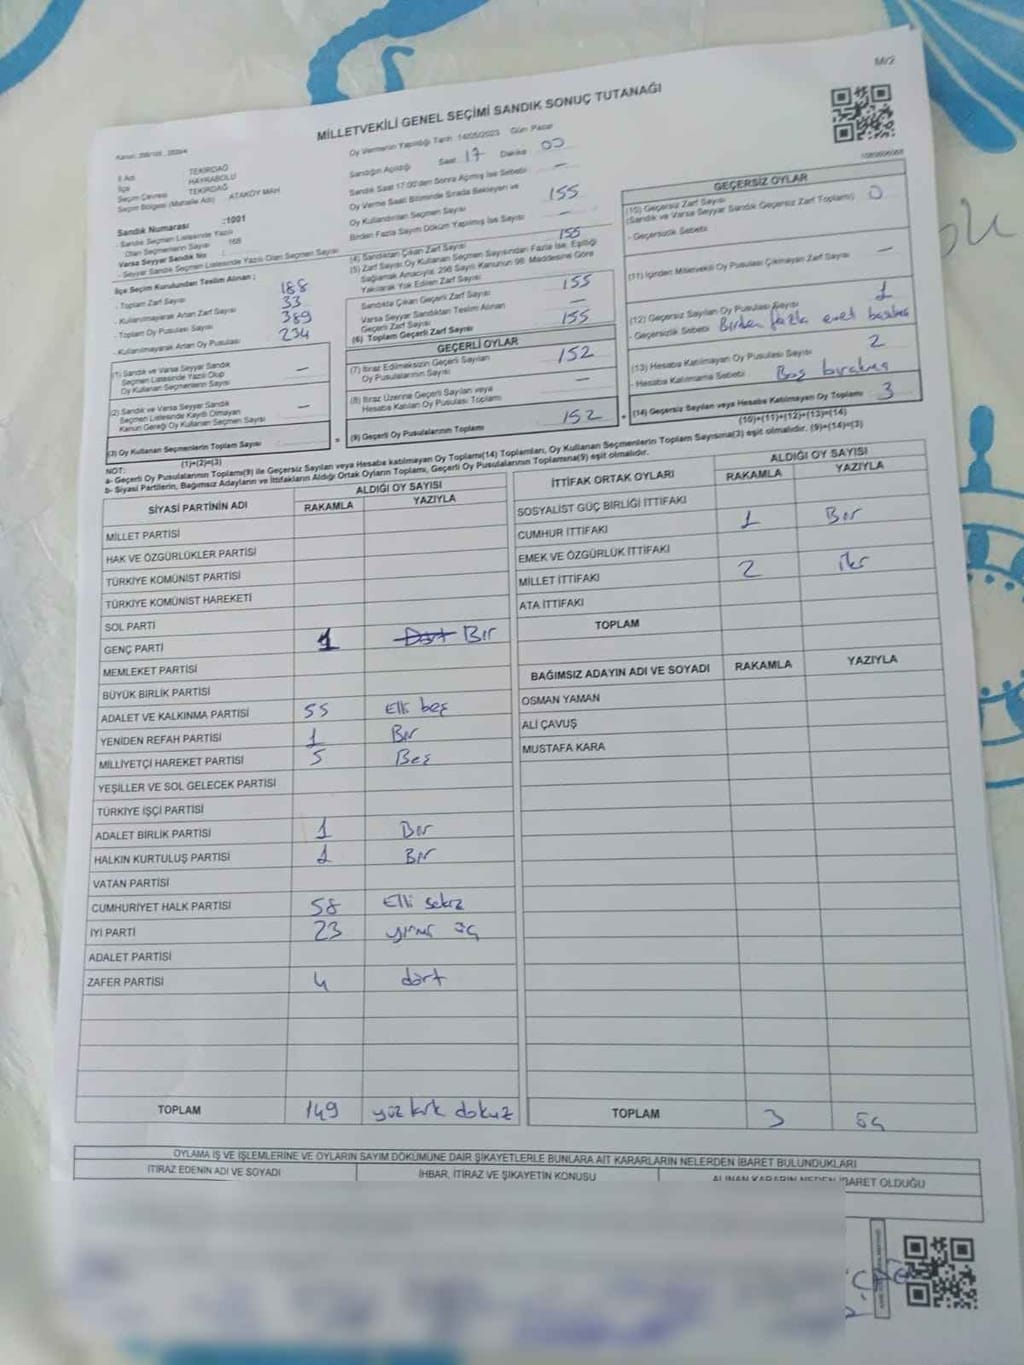 M/2
MİLLETVEKİLİ GENEL SEÇİMİ SANDIK SONUÇ TUTANAĞI
İl Adı TEKİRDAĞ
İlçe HAYRABOLU
Seçim Çevresi TEKİRDAĞ
Seçim Bölgesi (Mahalle Adı) ATAKÖY MAH
Sandık Numarası :1001
- Sandık Seçmen Listesinde Yazılı
Olan Seçmenlerin Sayısı : 168
Varsa Seyyar Sandık No :
- Seyyar Sandık Seçmen Listesinde Yazılı Olan Seçmen Sayısı
İlçe Seçim Kurulundan Teslim Alınan :
- Toplam Zarf Sayısı 188
- Kullanılmayarak Artan Zarf Sayısı 33
- Toplam Oy Pusulası Sayısı 389
- Kullanılmayarak Artan Oy Pusulası 234
(1) Sandık ve Varsa Seyyar Sandık
Seçmen Listesinde Yazılı Olup
Oy Kullanan Seçmenlerin Sayısı –
(2) Sandık ve Varsa Seyyar Sandık
Seçmen Listesinde Kayıtlı Olmayan
Kanun Gereği Oy Kullanan Seçmen Sayısı –
(3) Oy Kullanan Seçmenlerin Toplam Sayısı
(1)+(2)=(3)
Oy Vermenin Yapıldığı Tarih 14/05/2023 Gün Pazar
Sandığın Açıldığı Saat 17 Dakika 00
Sandık Saat 17:00'den Sonra Açılmış İse Sebebi –
Oy Verme Saati Bitiminde Sırada Bekleyen ve
Oy Kullandırılan Seçmen Sayısı 155
Birden Fazla Sayım Döküm Yapılmış İse Sayısı –
(4) Sandıktan Çıkan Zarf Sayısı 155
(5) Zarf Sayısı Oy Kullanan Seçmen Sayısından Fazla İse, Eşitliği
Sağlamak Amacıyla; 298 Sayılı Kanunun 98. Maddesine Göre
Yakılarak Yok Edilen Zarf Sayısı
Sandıkta Çıkan Geçerli Zarf Sayısı 155
Varsa Seyyar Sandıktan Teslim Alınan
Geçerli Zarf Sayısı –
(6) Toplam Geçerli Zarf Sayısı 155
GEÇERLİ OYLAR
(7) İtiraz Edilmeksizin Geçerli Sayılan
Oy Pusulalarının Sayısı 152
(8) İtiraz Üzerine Geçerli Sayılan veya
Hesaba Katılan Oy Pusulası Toplamı –
(9) Geçerli Oy Pusulalarının Toplamı 152
GEÇERSİZ OYLAR
(10) Geçersiz Zarf Sayısı
(Sandık ve Varsa Seyyar Sandık Geçersiz Zarf Toplamı) 0
- Geçersizlik Sebebi
(11) İçinden Milletvekili Oy Pusulası Çıkmayan Zarf Sayısı –
(12) Geçersiz Sayılan Oy Pusulası Sayısı 1
- Geçersizlik Sebebi Birden fazla evet basılması
(13) Hesaba Katılmayan Oy Pusulası Sayısı 2
- Hesaba Katılmama Sebebi Boş bırakmış
(14) Geçersiz Sayılan veya Hesaba Katılmayan Oy Toplamı 3
(10)+(11)+(12)+(13)=(14)
NOT:
a- Geçerli Oy Pusulalarının Toplamı(9) ile Geçersiz Sayılan veya Hesaba katılmayan Oy Toplamı(14) Toplamları, Oy Kullanan Seçmenlerin Toplam Sayısına(3) eşit olmalıdır. (9)+(14)=(3)
b- Siyasi Partilerin, Bağımsız Adayların ve İttifakların Aldığı Ortak Oyların Toplamı, Geçerli Oy Pusulalarının Toplamına(9) eşit olmalıdır.
SİYASİ PARTİNİN ADI ALDIĞI OY SAYISI
RAKAMLA YAZIYLA
MİLLET PARTİSİ
HAK VE ÖZGÜRLÜKLER PARTİSİ
TÜRKİYE KOMÜNİST PARTİSİ
TÜRKİYE KOMÜNİST HAREKETİ
SOL PARTİ
GENÇ PARTİ 1 Bir
MEMLEKET PARTİSİ
BÜYÜK BİRLİK PARTİSİ
ADALET VE KALKINMA PARTİSİ 55 Elli beş
YENİDEN REFAH PARTİSİ 1 Bir
MİLLİYETÇİ HAREKET PARTİSİ 5 Beş
YEŞİLLER VE SOL GELECEK PARTİSİ
TÜRKİYE İŞÇİ PARTİSİ
ADALET BİRLİK PARTİSİ 1 Bir
HALKIN KURTULUŞ PARTİSİ 1 Bir
VATAN PARTİSİ
CUMHURİYET HALK PARTİSİ 58 Elli sekiz
İYİ PARTİ 23 yirmi üç
ADALET PARTİSİ
ZAFER PARTİSİ 4 dört
TOPLAM 149 yüz kırk dokuz
İTTİFAK ORTAK OYLARI ALDIĞI OY SAYISI
RAKAMLA YAZIYLA
SOSYALİST GÜÇ BİRLİĞİ İTTİFAKI
CUMHUR İTTİFAKI 1 Bir
EMEK VE ÖZGÜRLÜK İTTİFAKI
MİLLET İTTİFAKI 2 iki
ATA İTTİFAKI
TOPLAM
BAĞIMSIZ ADAYIN ADI VE SOYADI RAKAMLA YAZIYLA
OSMAN YAMAN
ALİ ÇAVUŞ
MUSTAFA KARA
TOPLAM 3 üç
OYLAMA İŞ VE İŞLEMLERİNE VE OYLARIN SAYIM DÖKÜMÜNE DAİR ŞİKAYETLERLE BUNLARA AİT KARARLARIN NELERDEN İBARET BULUNDUKLARI
İTİRAZ EDENİN ADI VE SOYADI İHBAR, İTİRAZ VE ŞİKAYETİN KONUSU ALINAN KARARIN NEDEN İBARET OLDUĞU